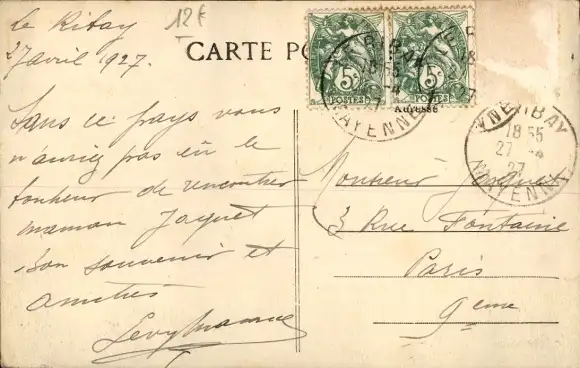 Le Ribay
27 avril 1927.
12 F
CARTE PO
5c
POSTES
5c
POSTES
Adresse
MAYENNE
RIBAY
18 55
27 -4
27
MAYENNE
Dans ce pays vous
n'auriez pas eu le
bonheur de rencontrer
maman Jaquet
Bon souvenir et
amitiés
Monsieur Jaquet
3 Rue Fontaine
Paris
9eme